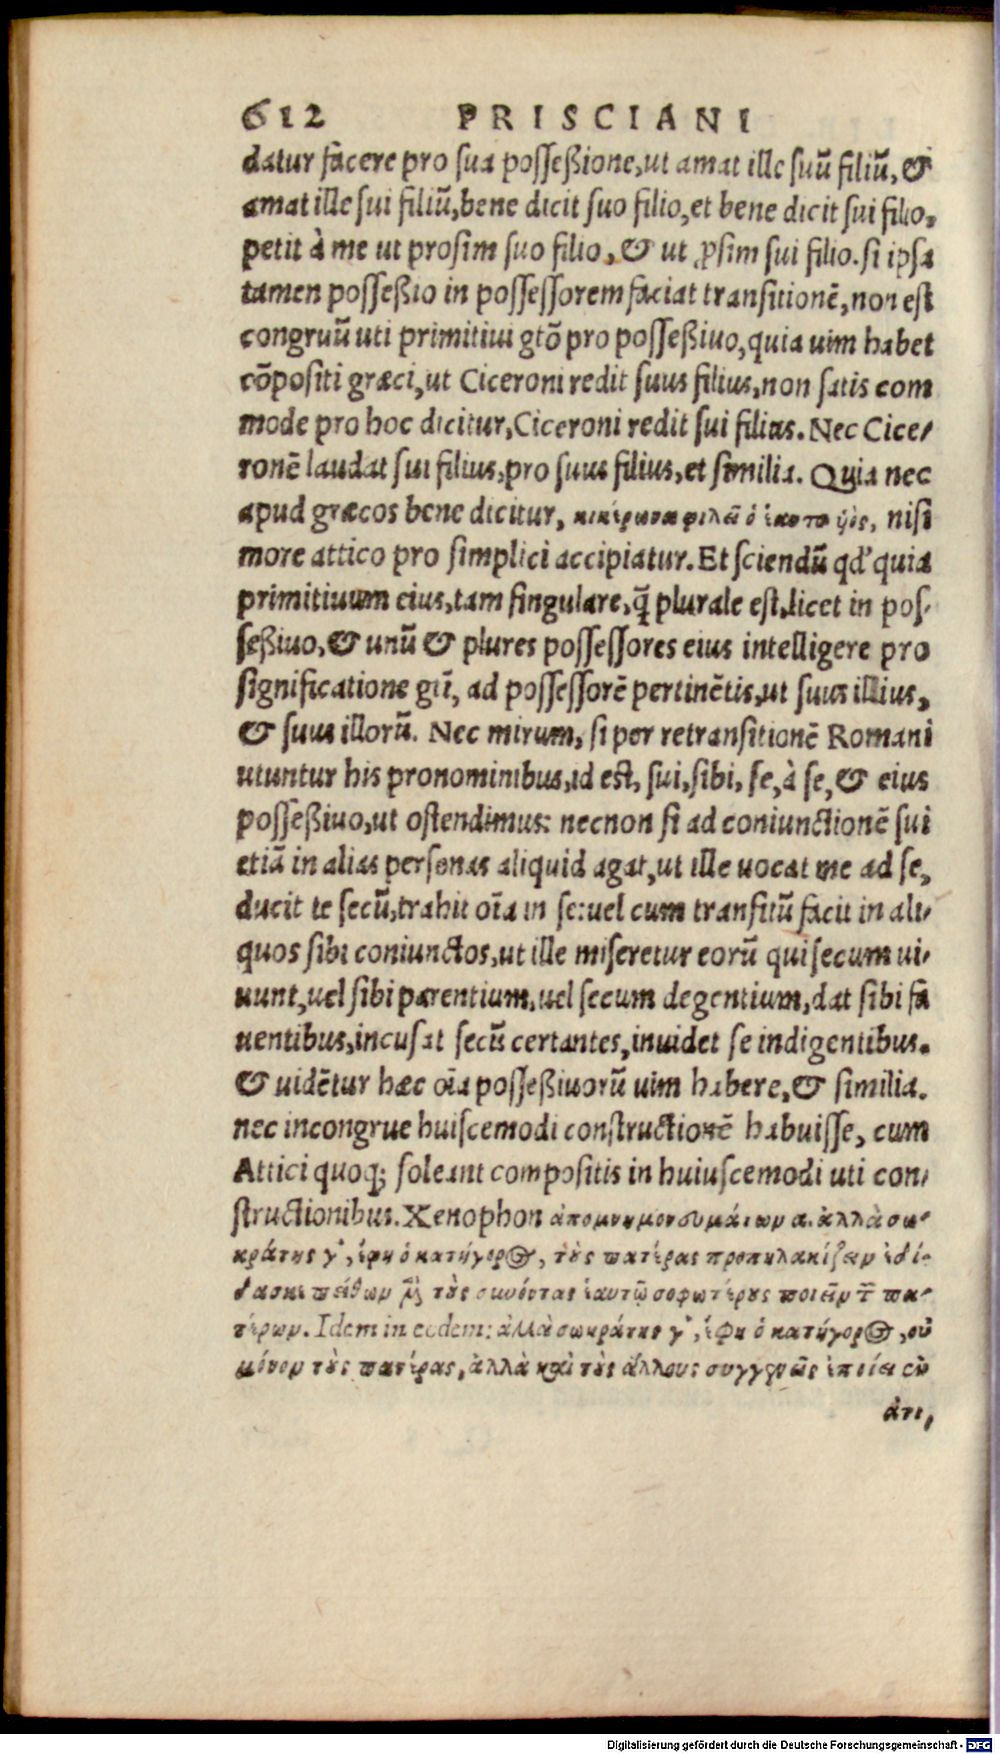 612 PRISCIANI
datur facere pro sua possessione, ut amat ille suũ filiũ, &
amat ille sui filiũ, bene dicit suo filio, et bene dicit sui filio,
petit à me ut prosim suo filio, & ut ꝓsim sui filio. si ipsa
tamen possessio in possessorem faciat transitionẽ, non est
congruũ uti primitiui gtõ pro possessiuo, quia uim habet
cõpositi græci, ut Ciceroni redit suus filius, non satis com
mode pro hoc dicitur, Ciceroni redit sui filius. Nec Cice-
ronẽ laudat sui filius, pro suus filius, et similia. Quia nec
apud græcos bene dicitur, κικέρωνα φιλεῖ ὁ ἑαυτοῦ ὑὸς, nisi
more attico pro simplici accipiatur. Et sciendũ qd' quia
primitiuum eius, tam singulare, q̃ plurale est, licet in pos-
sessiuo, & unũ & plures possessores eius intelligere pro
significatione gũ, ad possessorẽ pertinẽtis, ut suus illius,
& suus illorũ. Nec mirum, si per retransitionẽ Romani
utuntur his pronominibus, id est, sui, sibi, se, à se, & eius
possessiuo, ut ostendimus: necnon si ad coniunctionẽ sui
etiã in alias personas aliquid agat, ut ille uocat me ad se,
ducit te secũ, trahit oĩa in se: uel cum transitũ facit in ali-
quos sibi coniunctos, ut ille miseretur eorũ qui secum ui-
uunt, uel sibi parentium, uel secum degentium, dat sibi fa
uentibus, incusat secũ certantes, inuidet se indigentibus.
& uidẽtur hæc oĩa possessiuorũ uim habere, & similia.
nec incongrue huiscemodi constructionẽ habuisse, cum
Attici quoq; soleant compositis in huiuscemodi uti con-
structionibus. Xenophon ἀπομνημονευμάτων α. ἀλλὰ σω-
κράτης γ', ἔφη ὁ κατήγορος, τοὺς πατέρας προπηλακίζειν ἐδί-
δασκε πείθων μὲν τοὺς συνόντας ἑαυτῷ σοφωτέρους ποιεῖν τῶν πα-
τέρων. Idem in eodem: ἀλλὰ σωκράτης γ', ἔφη ὁ κατήγορος, οὐ
μόνον τοὺς πατέρας, ἀλλὰ καὶ τοὺς ἄλλους συγγενεῖς ἐποίει ἐν
ἀτι,